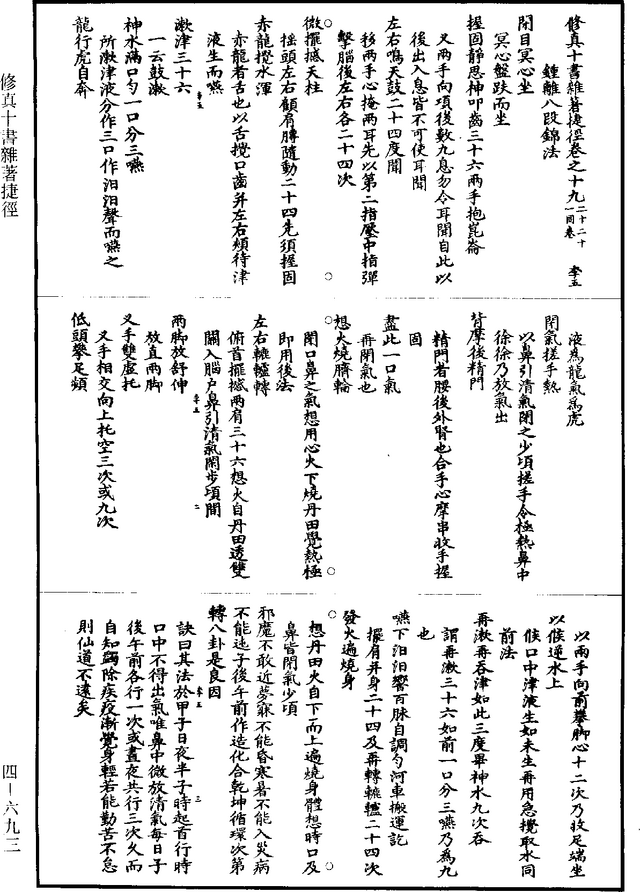 修真十書雜著捷徑
修真十書雜著捷徑卷之十九 二十二十一同卷 李五
鍾離八段錦法
閉目冥心坐
冥心盤趺而坐
握固靜思神叩齒三十六兩手抱崑崙
叉兩手向項後數九息勿令耳聞自此以
後出入息皆不可使耳聞
左右鳴天鼓二十四度聞
移兩手心掩兩耳先以第二指壓中指彈
擊腦後左右各二十四次
微擺撼天柱
搖頭左右顧肩膊隨動二十四先須握固
赤龍攪水渾
赤龍者舌也以舌攪口齒并左右頰待津
液生而嚥
漱津三十六
一云鼓漱
神水滿口勻一口分三嚥
所漱津液分作三口作汩汩聲而嚥之
龍行虎自奔
液為龍氣為虎
閉氣搓手熱
以鼻引清氣閉之少頃搓手令極熱鼻中
徐徐乃放氣出
背摩後精門
精門者腰後外腎也合手心摩畢收手握
固
盡此一口氣
再閉氣也
想火燒臍輪
閉口鼻之氣想用心火下燒丹田覺熱極
即用後法
左右轆轤轉
俯首擺撼兩肩三十六想火自丹田透雙
關入腦戶鼻引清氣閉少頃間
兩腳放舒伸
放直兩腳
叉手雙虛托
叉手相交向上托空三次或九次
低頭攀足頻
以兩手向前攀腳心十二次乃收足端坐
以候逆水上
候口中津液生如未生再用急攪取水同
前法
再漱再吞津如此三度畢神水九次吞
謂再漱三十六如前一口分三嚥乃為九
也
嚥下汩汩響百脉自調勻河車搬運訖
擺肩并身二十四及再轉轆轤二十四次
發火遍燒身
想丹田火自下而上遍燒身體想時口及
鼻皆閉氣少頃
邪魔不敢近夢寐不能昏寒暑不能入災病
不能迍子後午前作造化合乾坤循環次第
轉八卦是良因
訣曰其法於甲子日夜半子時起首行時
口中不得出氣唯鼻中微放清氣每日子
後午前各行一次或晝夜共行三次久而
自知蠲除疾疫漸覺身輕若能勤苦不怠
則仙道不遠矣
四－六九三